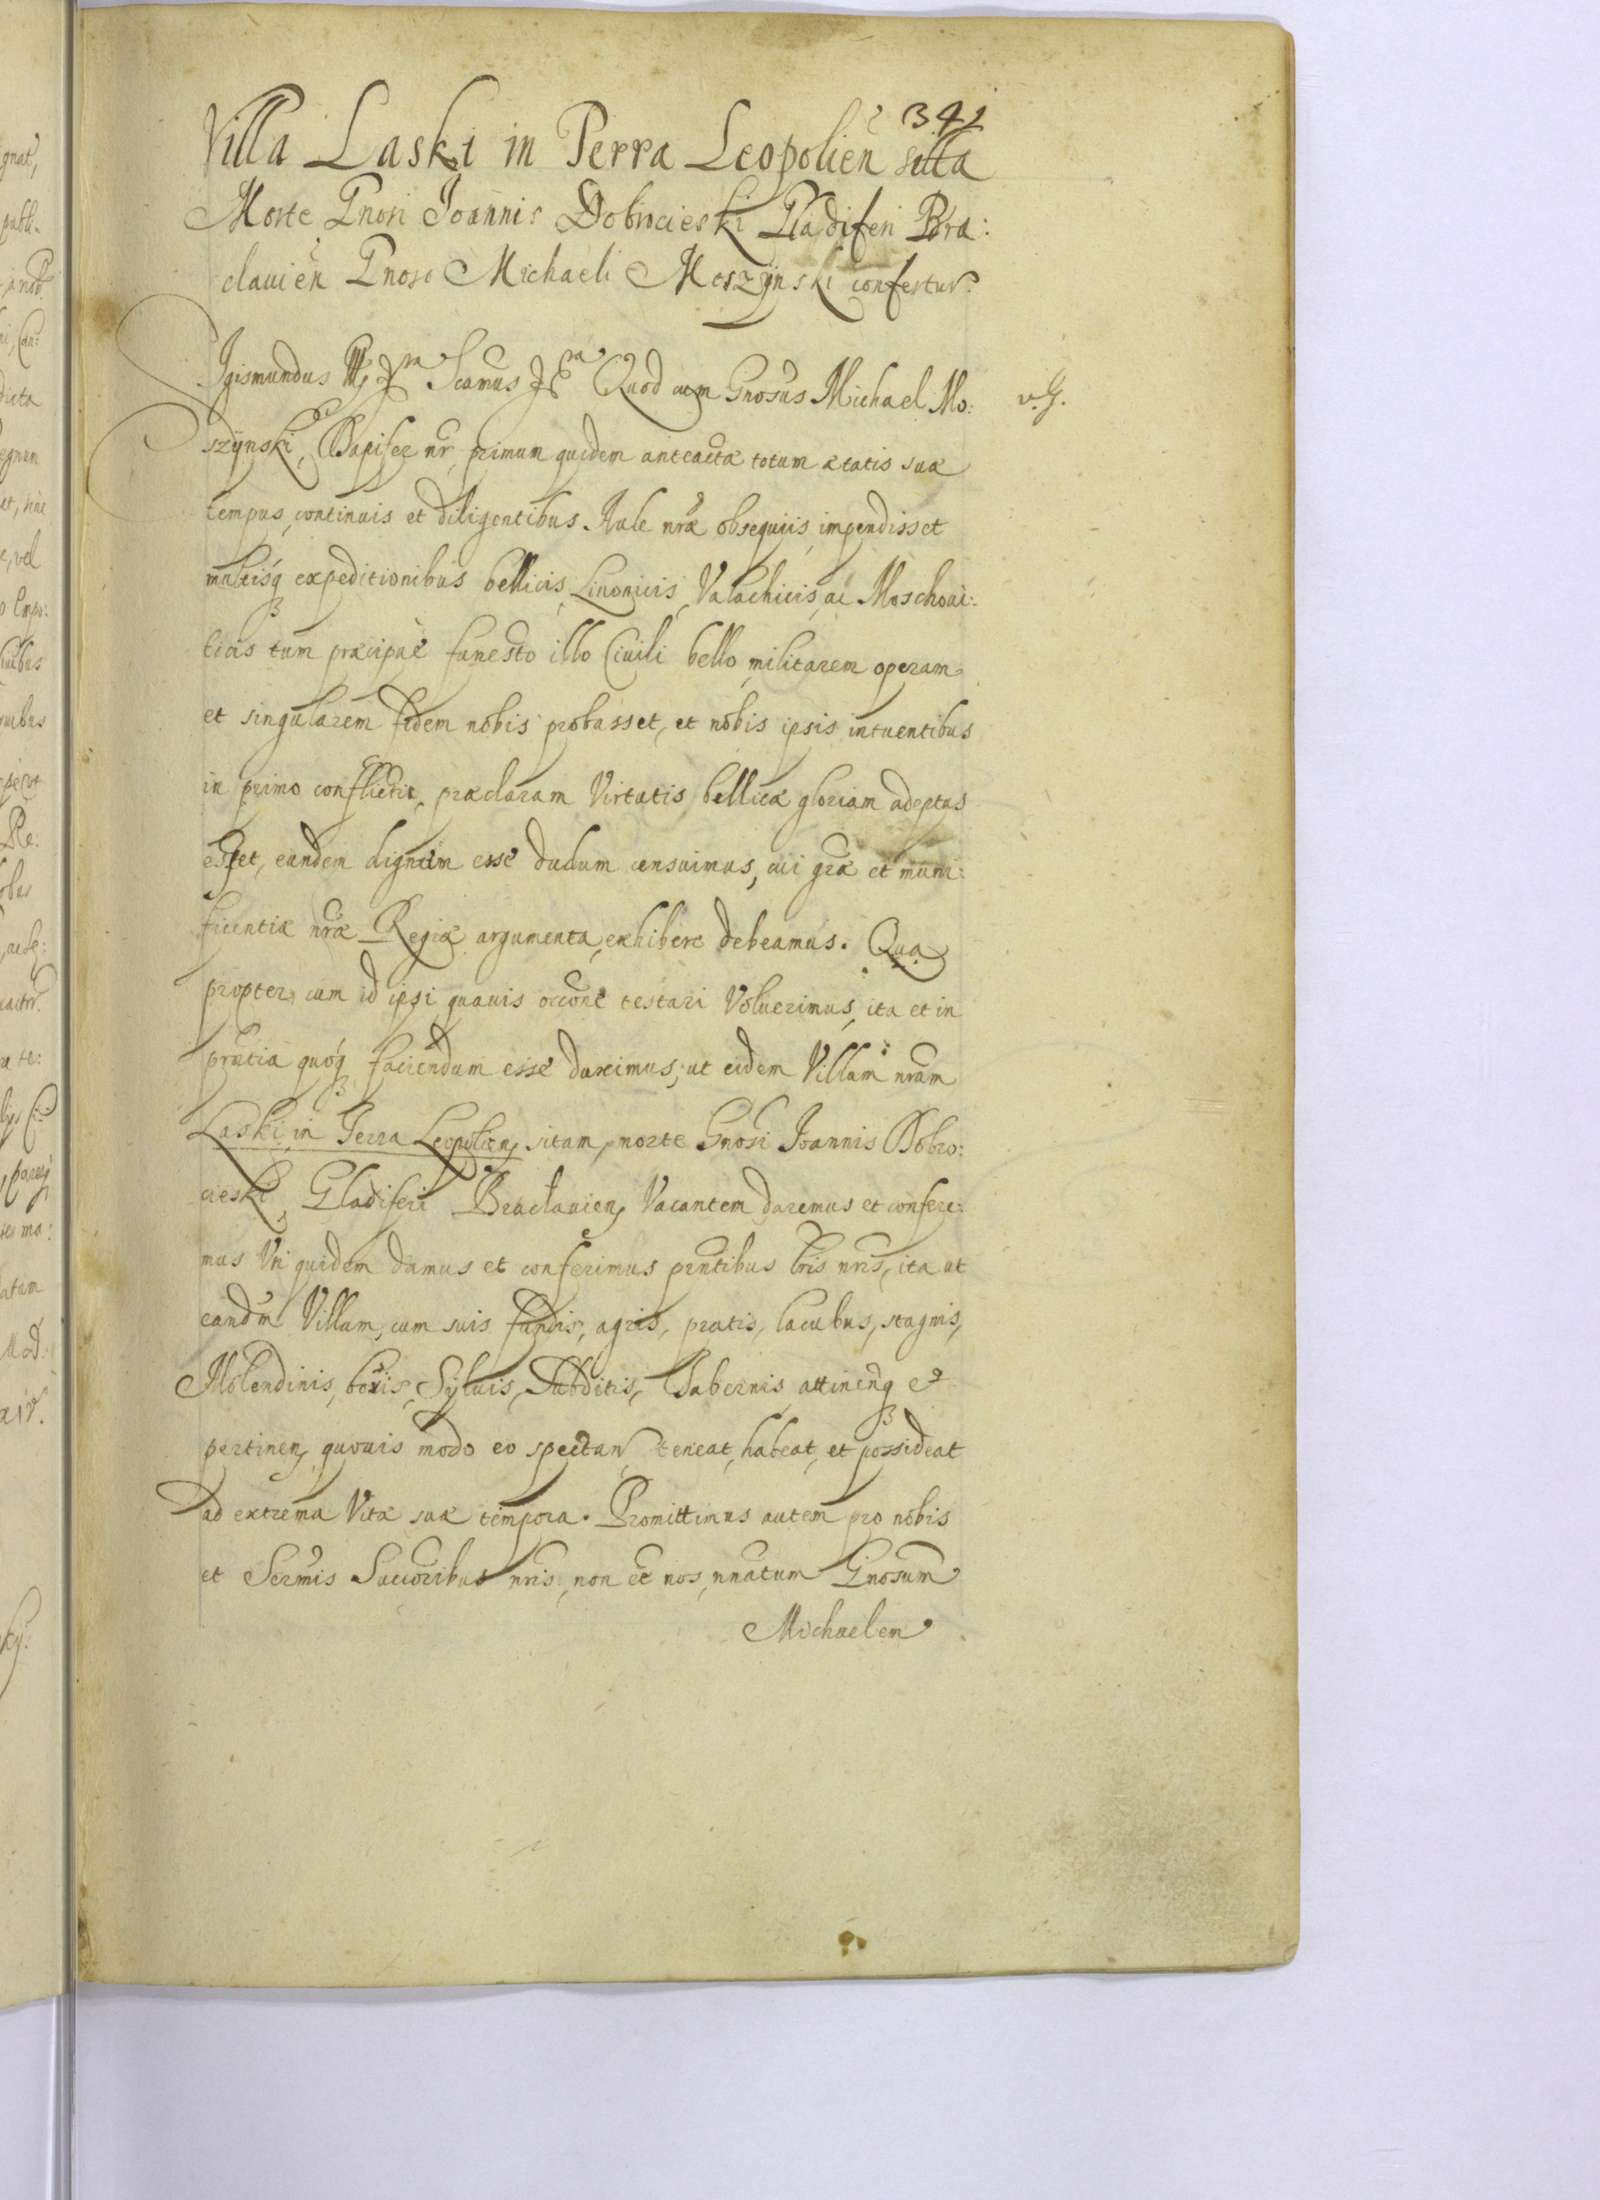 341
Villa Laski in Terra Leopolien sitta
Morte Gnosi Joannis Dobrocieski Gladiferi Bra:
clauien Gnoso Michaeli Moszÿnski confertur.
Sigismundus III, Quod cum Gnosus Michael Mo:
v. G.
szÿnski, Dapifer nr, primum quidem anteactæ totum ætatis suæ
tempus, continuis et diligentibus Aulæ nræ obsequiis, impendisset
multisq expeditionibus bellicis, Liuonicis, Valachicis, ac Moschoui:
ticis tum præcipuè funesto illo Ciuili bello, militarem operam
et singularem fidem nobis probasset, et nobis ipsis intuentibus
in primo conflictu, præclaram Virtutis bellicæ gloriam adeptus
esset, eundem dignum esse dudum censuimus, cui græ et muni:
ficentiæ nræ Regiæ argumenta, exhibere debeamus. Qua
propter, cum id ipsi quauis occone testari Voluerimus, ita et in
prntia quóq faciendum esse duximus, ut eidem Villam nram
Laski, in Terra Leopolien, sitam, morte Gnosi Joannis Dobro:
cieski, Gladiferi Braclauien, Vacantem daremus et confere:
mus Vti quidem damus et conferimus prntibus lris nris, ita ut
eandm Villam, cum suis fundis, agris, pratis, lacubus, stagnis,
Molendinis, boris, Syluis, Subditis, Tabernis, attinenq et
pertinen, quouis modo eo spectan, teneat, habeat, et possideat
ad extrema Vitæ suæ tempora. Promittimus autem pro nobis
et Sermis Succoribus nris, non ee nos, nnatum Gnosum
Michaelem